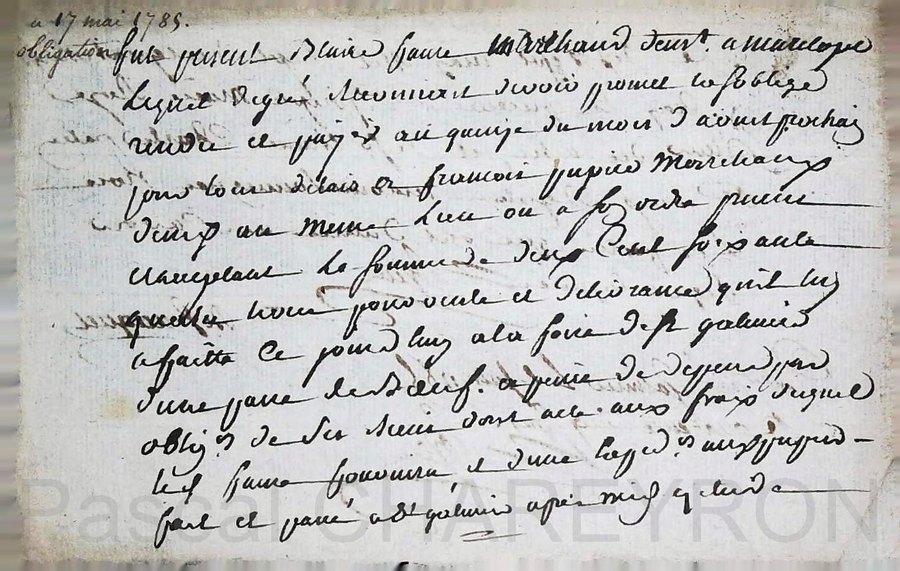 a 17 mai 1785.
obligation
fut present Blaise faure Marchand demt. a
Lequel de gré reconnoit devoir promet et soblige
rendre et payer au quinze du mois d'aoust prochain
pour tout delais a francois pupier Marchand
demt au meme Lieu ou a son ordre present
acceptant La somme de deux Cent soixante
quatre livre pour vente et delivrance qu'il luy
a faitte Ce jourd'huy a la foire de st galmier
d'une paire de Bœuf. a peine de depens par
oblig.n de ses biens dont acte. aux frais duquel
led faure fournira et d'une au pupier
fait et passé a st galmier apres midy
Pascal CHAREYRON